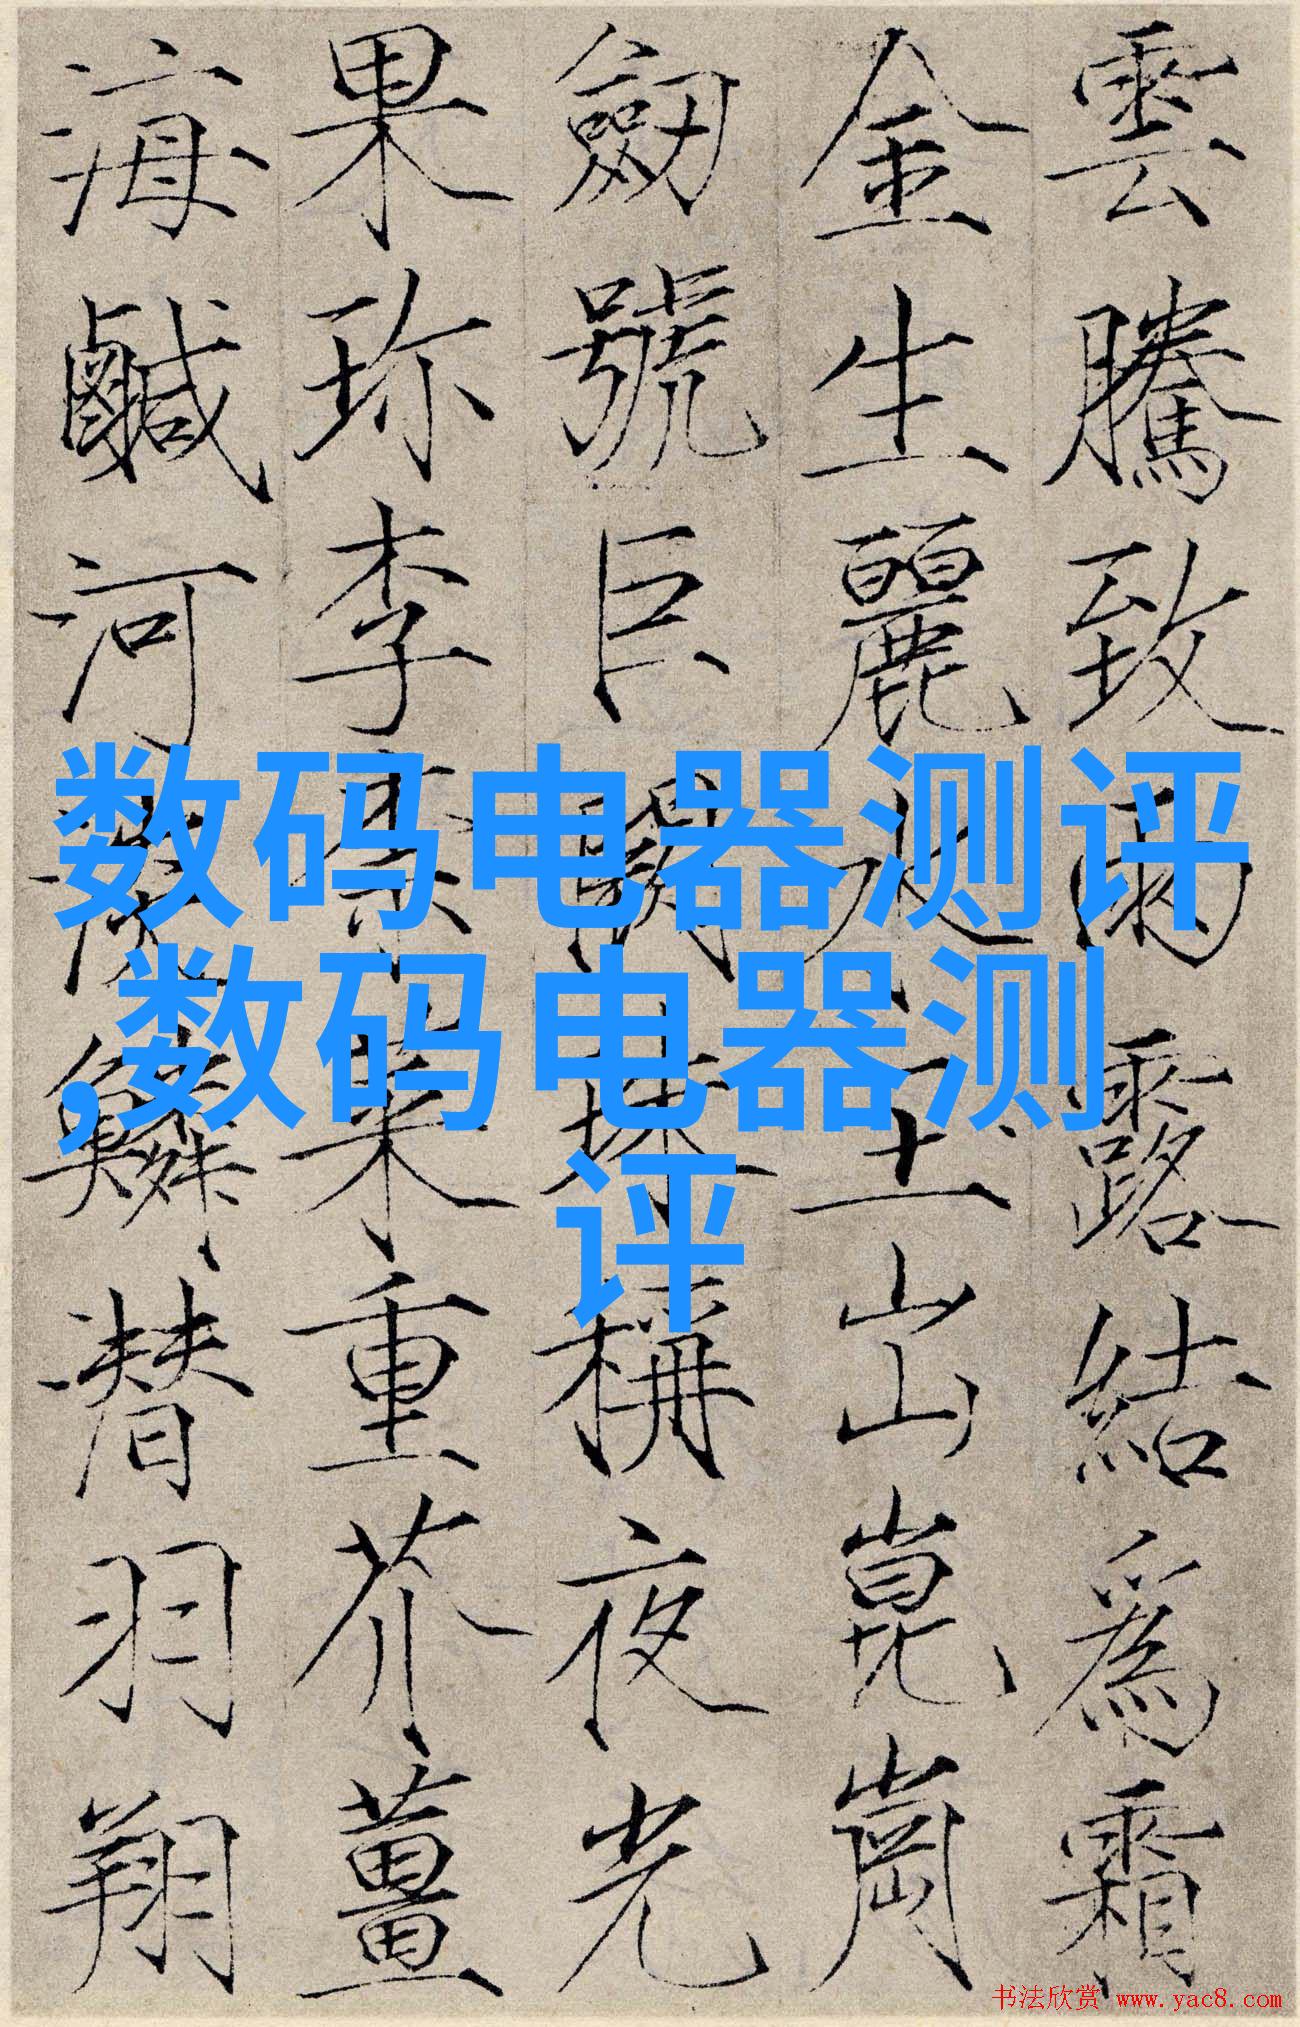 雲騰致雨露結爲霜
金生麗水玉出崑崗
劒號巨闕珠稱夜光
果珎李柰菜重芥薑
海鹹河淡鱗潜羽翔
数码电器测评
,数码电器测
评
书法欣赏 www.yac8.com